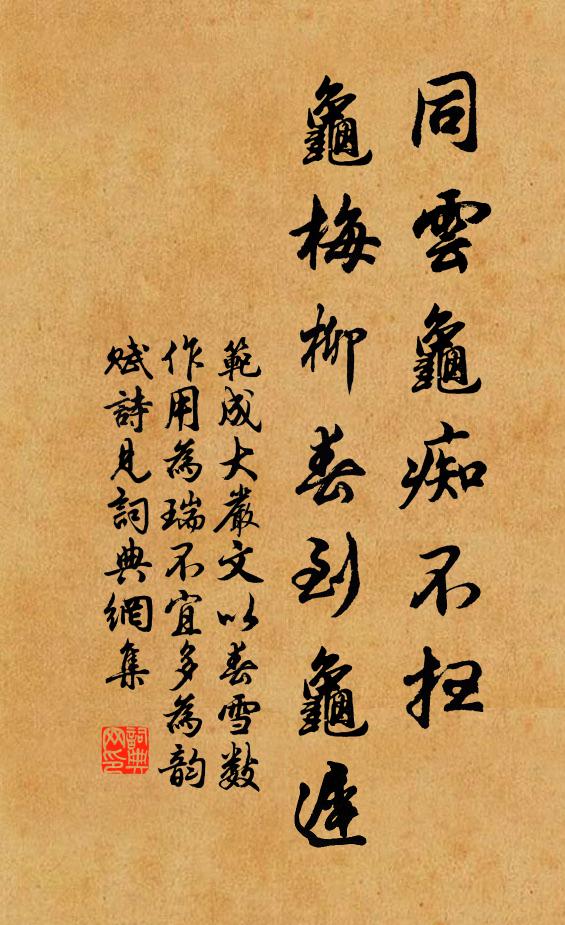 同雲龜痴不扫
龜梅柳春到龜遲
範成大嚴文以春雪数
作用為瑞不宜多為韵
賦詩見詞典網集
詞典
网印